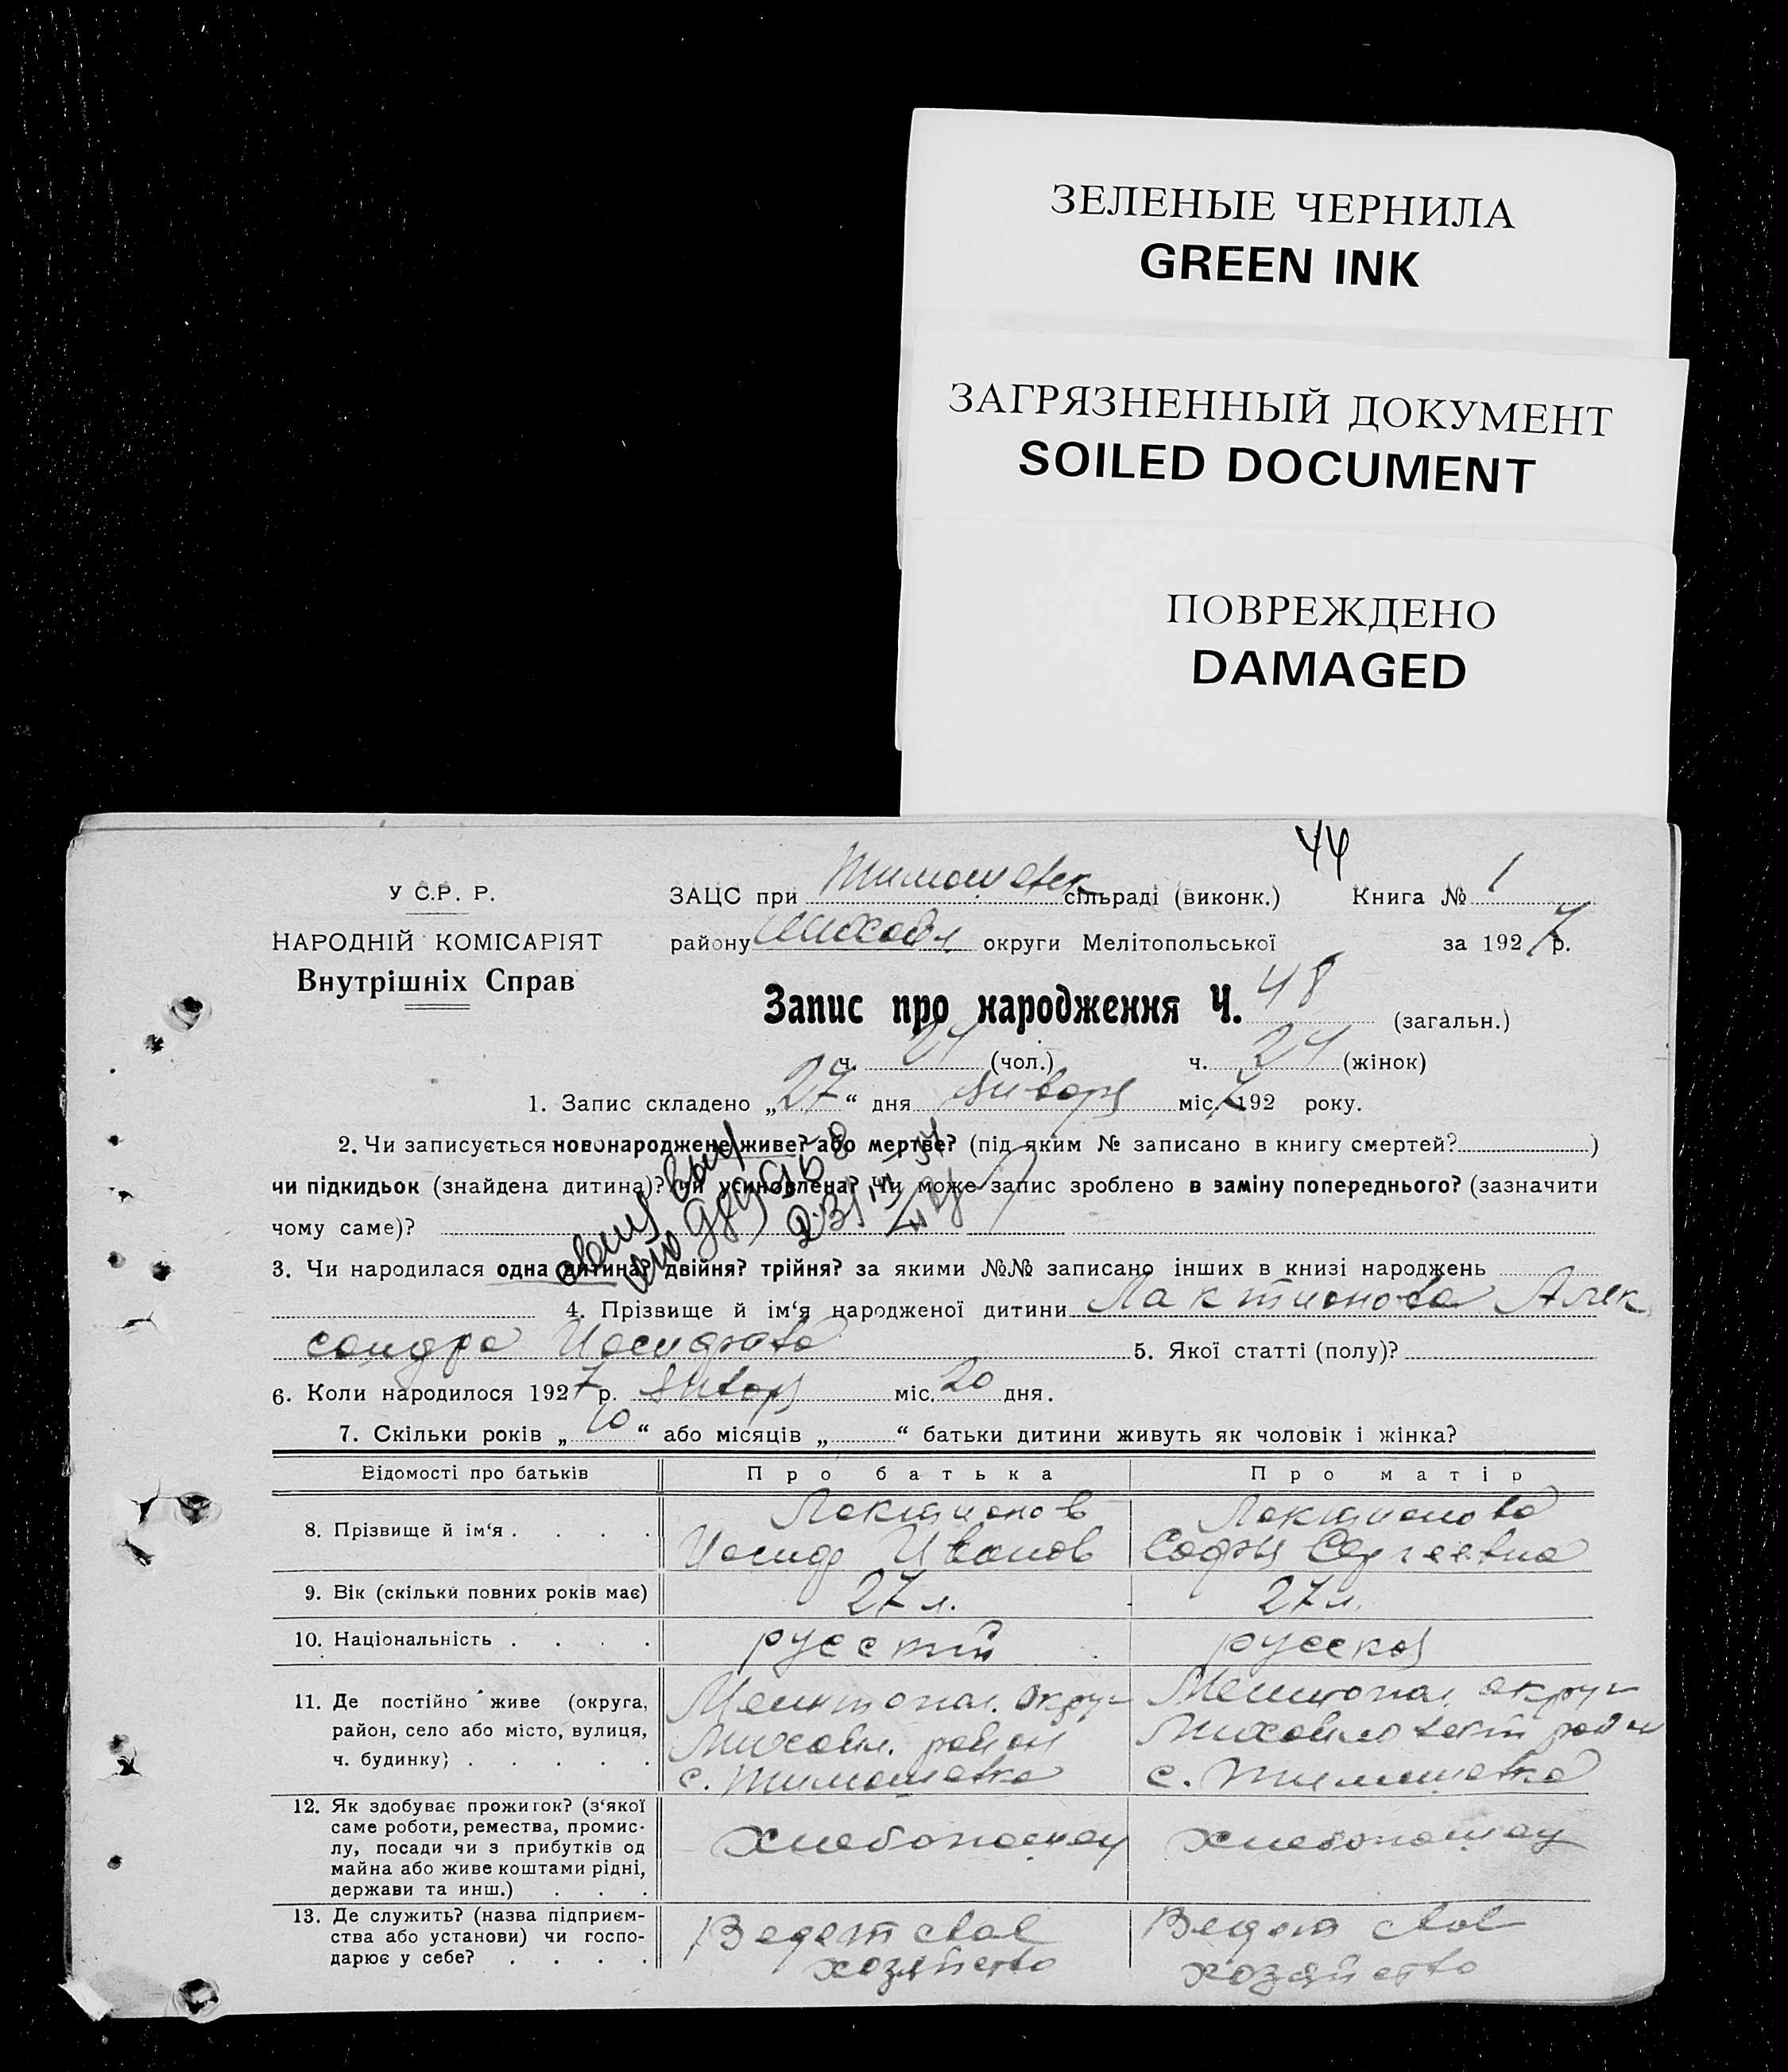 ЗЕЛЕНЫЕ ЧЕРНИЛА
GREEN INK
ЗАГРЯЗНЕННЫЙ ДОКУМЕНТ
SOILED DOCUMENT
ПОВРЕЖДЕНО
DAMAGED
44
У С.Р. Р.
НАРОДНІЙ КОМІСАРІЯТ
Внутрішніх Справ
ЗАЦС при Тимошевск сільраді (виконк.) Книга № 1
району Михайл округи Мелітопольської за 1927 р.
Запис про народження Ч. 48 (загальн.)
ч. (чол.) ч. 24 (жінок)
1. Запис складено „27“ дня января міс. 7 192 року.
2. Чи записується новонароджене живе? або мертве? (під яким № записано в книгу смертей? )
чи підкидьок (знайдена дитина)? чи усиновлена? Чи може запис зроблено в заміну попереднього? (зазначити
чому саме)?
3. Чи народилася одна дитина? двійня? трійня? за якими №№ записано інших в книзі народжень
4. Прізвище й ім‘я народженої дитини Лактионова Алек
сандра Иосифова 5. Якої статті (полу)?
6. Коли народилося 1927 р. январ міс. 20 дня.
7. Скільки років „10“ або місяців „ “ батьки дитини живуть як чоловік і жінка?
Відомості про батьків Про батька Про матір
8. Прізвище й ім‘я . . . . Лактионов Лактионова
Иосиф Иванов Софья Сергеевна
9. Вік (скільки повних років має) 27 л. 27 л.
10. Національність . . . . русский русская
11. Де постійно живе (округа, район, село або місто, вулиця, ч. будинку) . . . . .
Мелитопол. округ Мелитопол. округ
Михайл. район Михайловский район
с. Тимошевка с. Тимошевка
12. Як здобуває прожиток? (з‘якої
саме роботи, ремества, промис-
лу, посади чи з прибутків од
майна або живе коштами рідні,
держави та инш.) . . .
хлебопашец хлебопашец
13. Де служить? (назва підприєм-
ства або установи) чи госпо-
дарює у себе? . . . .
Ведет свое Ведет свое
хозяйство хозяйство